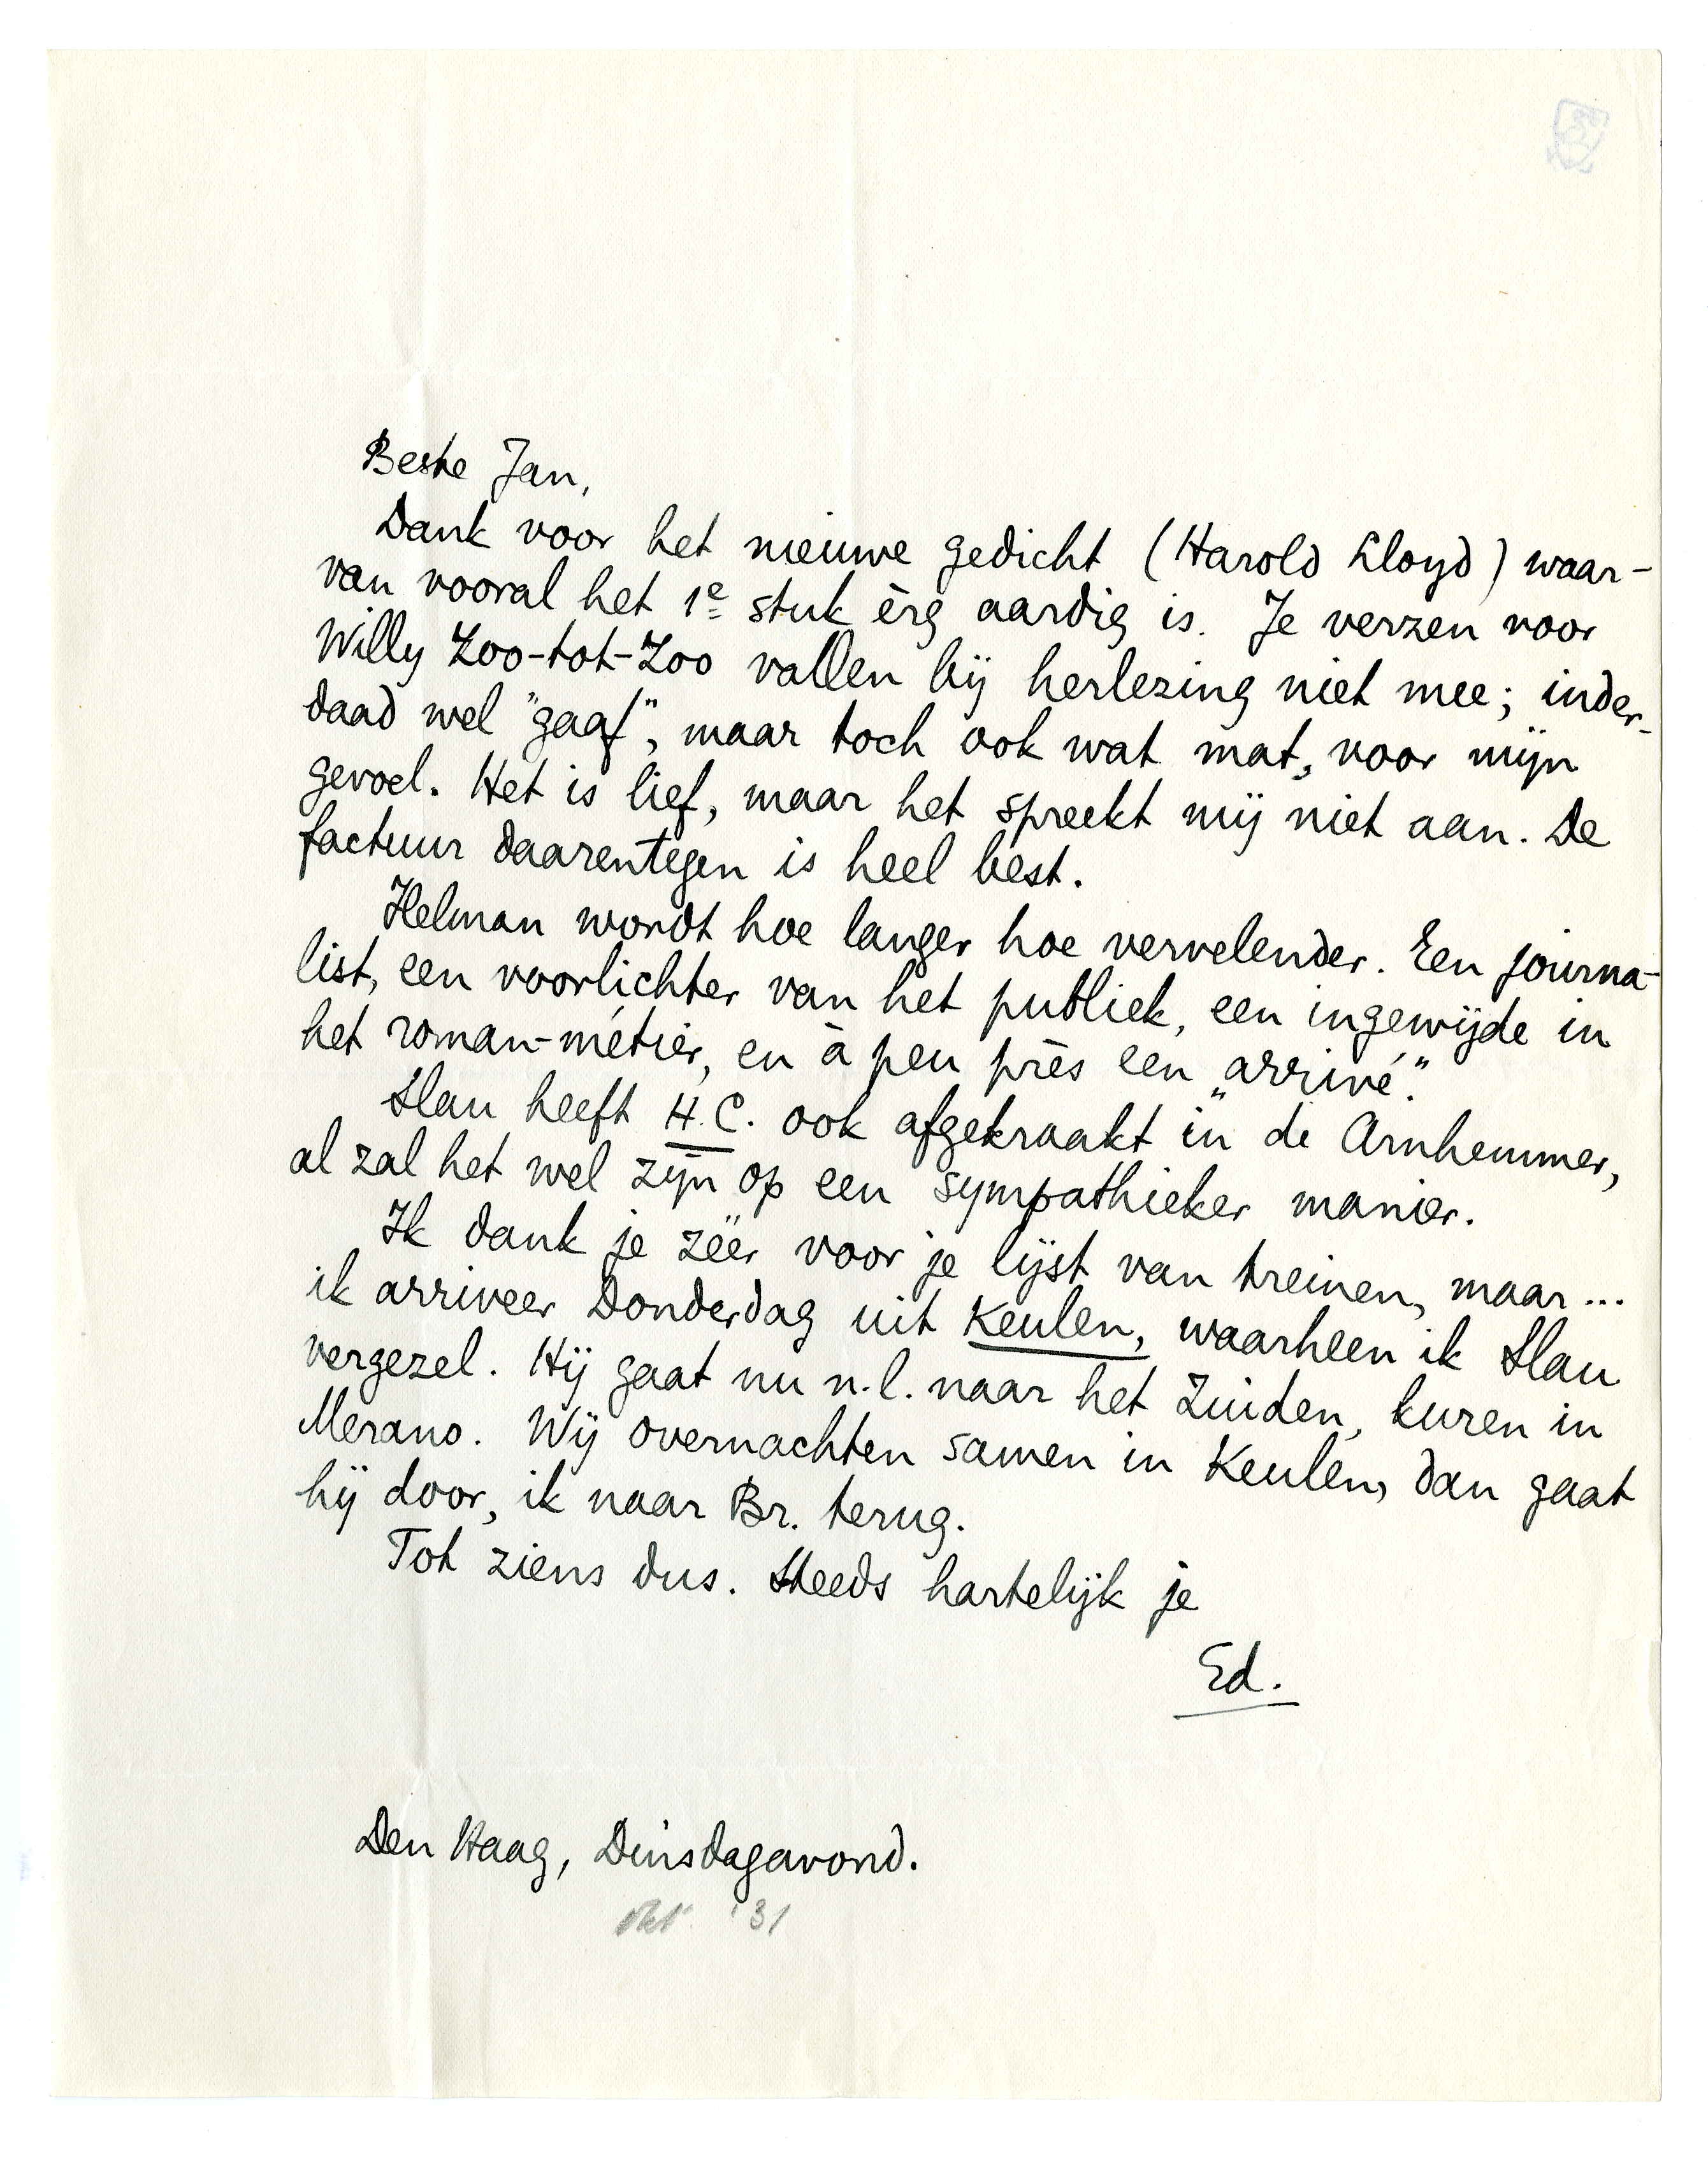 Beste Jan,
Dank voor het nieuwe gedicht (Harold Lloyd) waar-
van vooral het 1e stuk èrg aardig is. Je verzen voor
Willy Zoo-tot-Zoo vallen bij herlezing niet mee; inder-
daad wel "gaaf", maar toch ook wat mat, voor mijn
gevoel. Het is lief, maar het spreekt mij niet aan. De
factuur daarentegen is heel best.
Helman wordt hoe langer hoe vervelender. Een journa-
list, een voorlichter van het publiek, een ingewijde in
het roman-métier, en à peu près een „arrivé".
Slau heeft H.C. ook afgekraakt in de Arnhemmer,
al zal het wel zijn op een sympathieker manier.
Ik dank je zéér voor je lijst van treinen, maar...
ik arriveer Donderdag uit Keulen, waarheen ik Slau
vergezel. Hij gaat nu n.l. naar het Zuiden, kuren in
Merano. Wij overnachten samen in Keulen, dan gaat
hij door, ik naar Br. terug.
Tot ziens dus. Steeds hartelijk je
Ed.
Den Haag, Dinsdagavond.
okt. '31